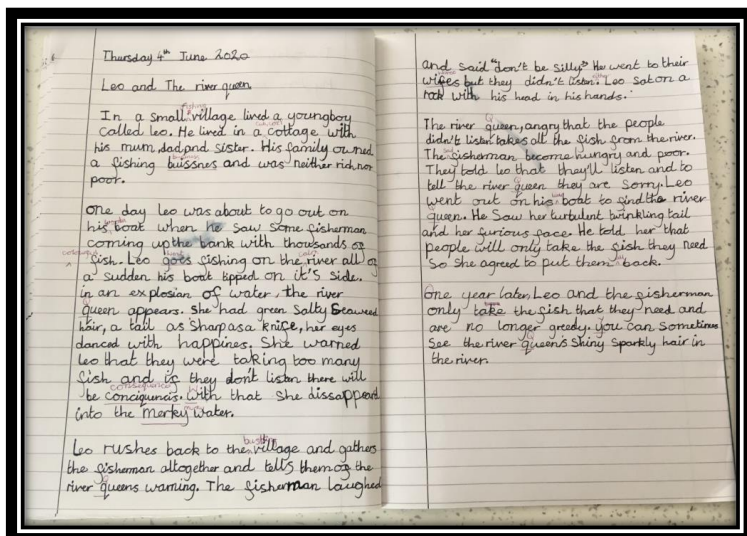 Thursday 4th June 2020
Leo and The river queen
fishing
In a small village lived a youngboy
called leo. He lived in a cottage with
his mum, dad and sister. His family owned
business
a fishing buissnes and was neither rich nor
poor.
One day leo was about to go out on
wooden
his boat when he saw some fisherman
coming up the bank with thousands of
fish. Leo goes fishing on the river all of
a sudden his boat tipped on it's side.
in an explosian of water, the river
Q
queen appears. She had green Salty Seaweed
hair, a tail as Sharp as a knife, her eyes
danced with happines. She warned
leo that they were taking too many
fish and if they don't listen there will
consequences
be conciquncis. With that she dissappeard
murky
into the merky water.
bustling
Leo rushes back to the village and gathers
the fisherman altogether and tells them of the
river queens warning. The fisherman laughed
and said "don't be silly" He went to their
wifes but they didn't listen. Leo sat on a
rock with his head in his hands.
Q
The river queen, angry that the people
didn't listen takes all the fish from the river.
The fisherman become hungry and poor.
They told leo that they'll listen and to
tell the river queen they are sorry. Leo
went out on his boat to find the river
queen. He Saw her turbulent twinkling tail
and her furious face. He told her that
people will only take the fish they need
So she agreed to put them back.
One year later, Leo and the fisherman
only take the fish that they need and
are no longer greedy. you can sometimes
See the river queen's Shiny Sparkly hair in
the river.